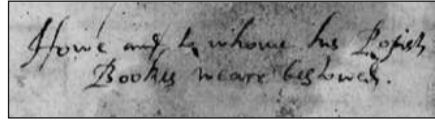 Howe and to whome his Popish
Bookes weare bestowed.